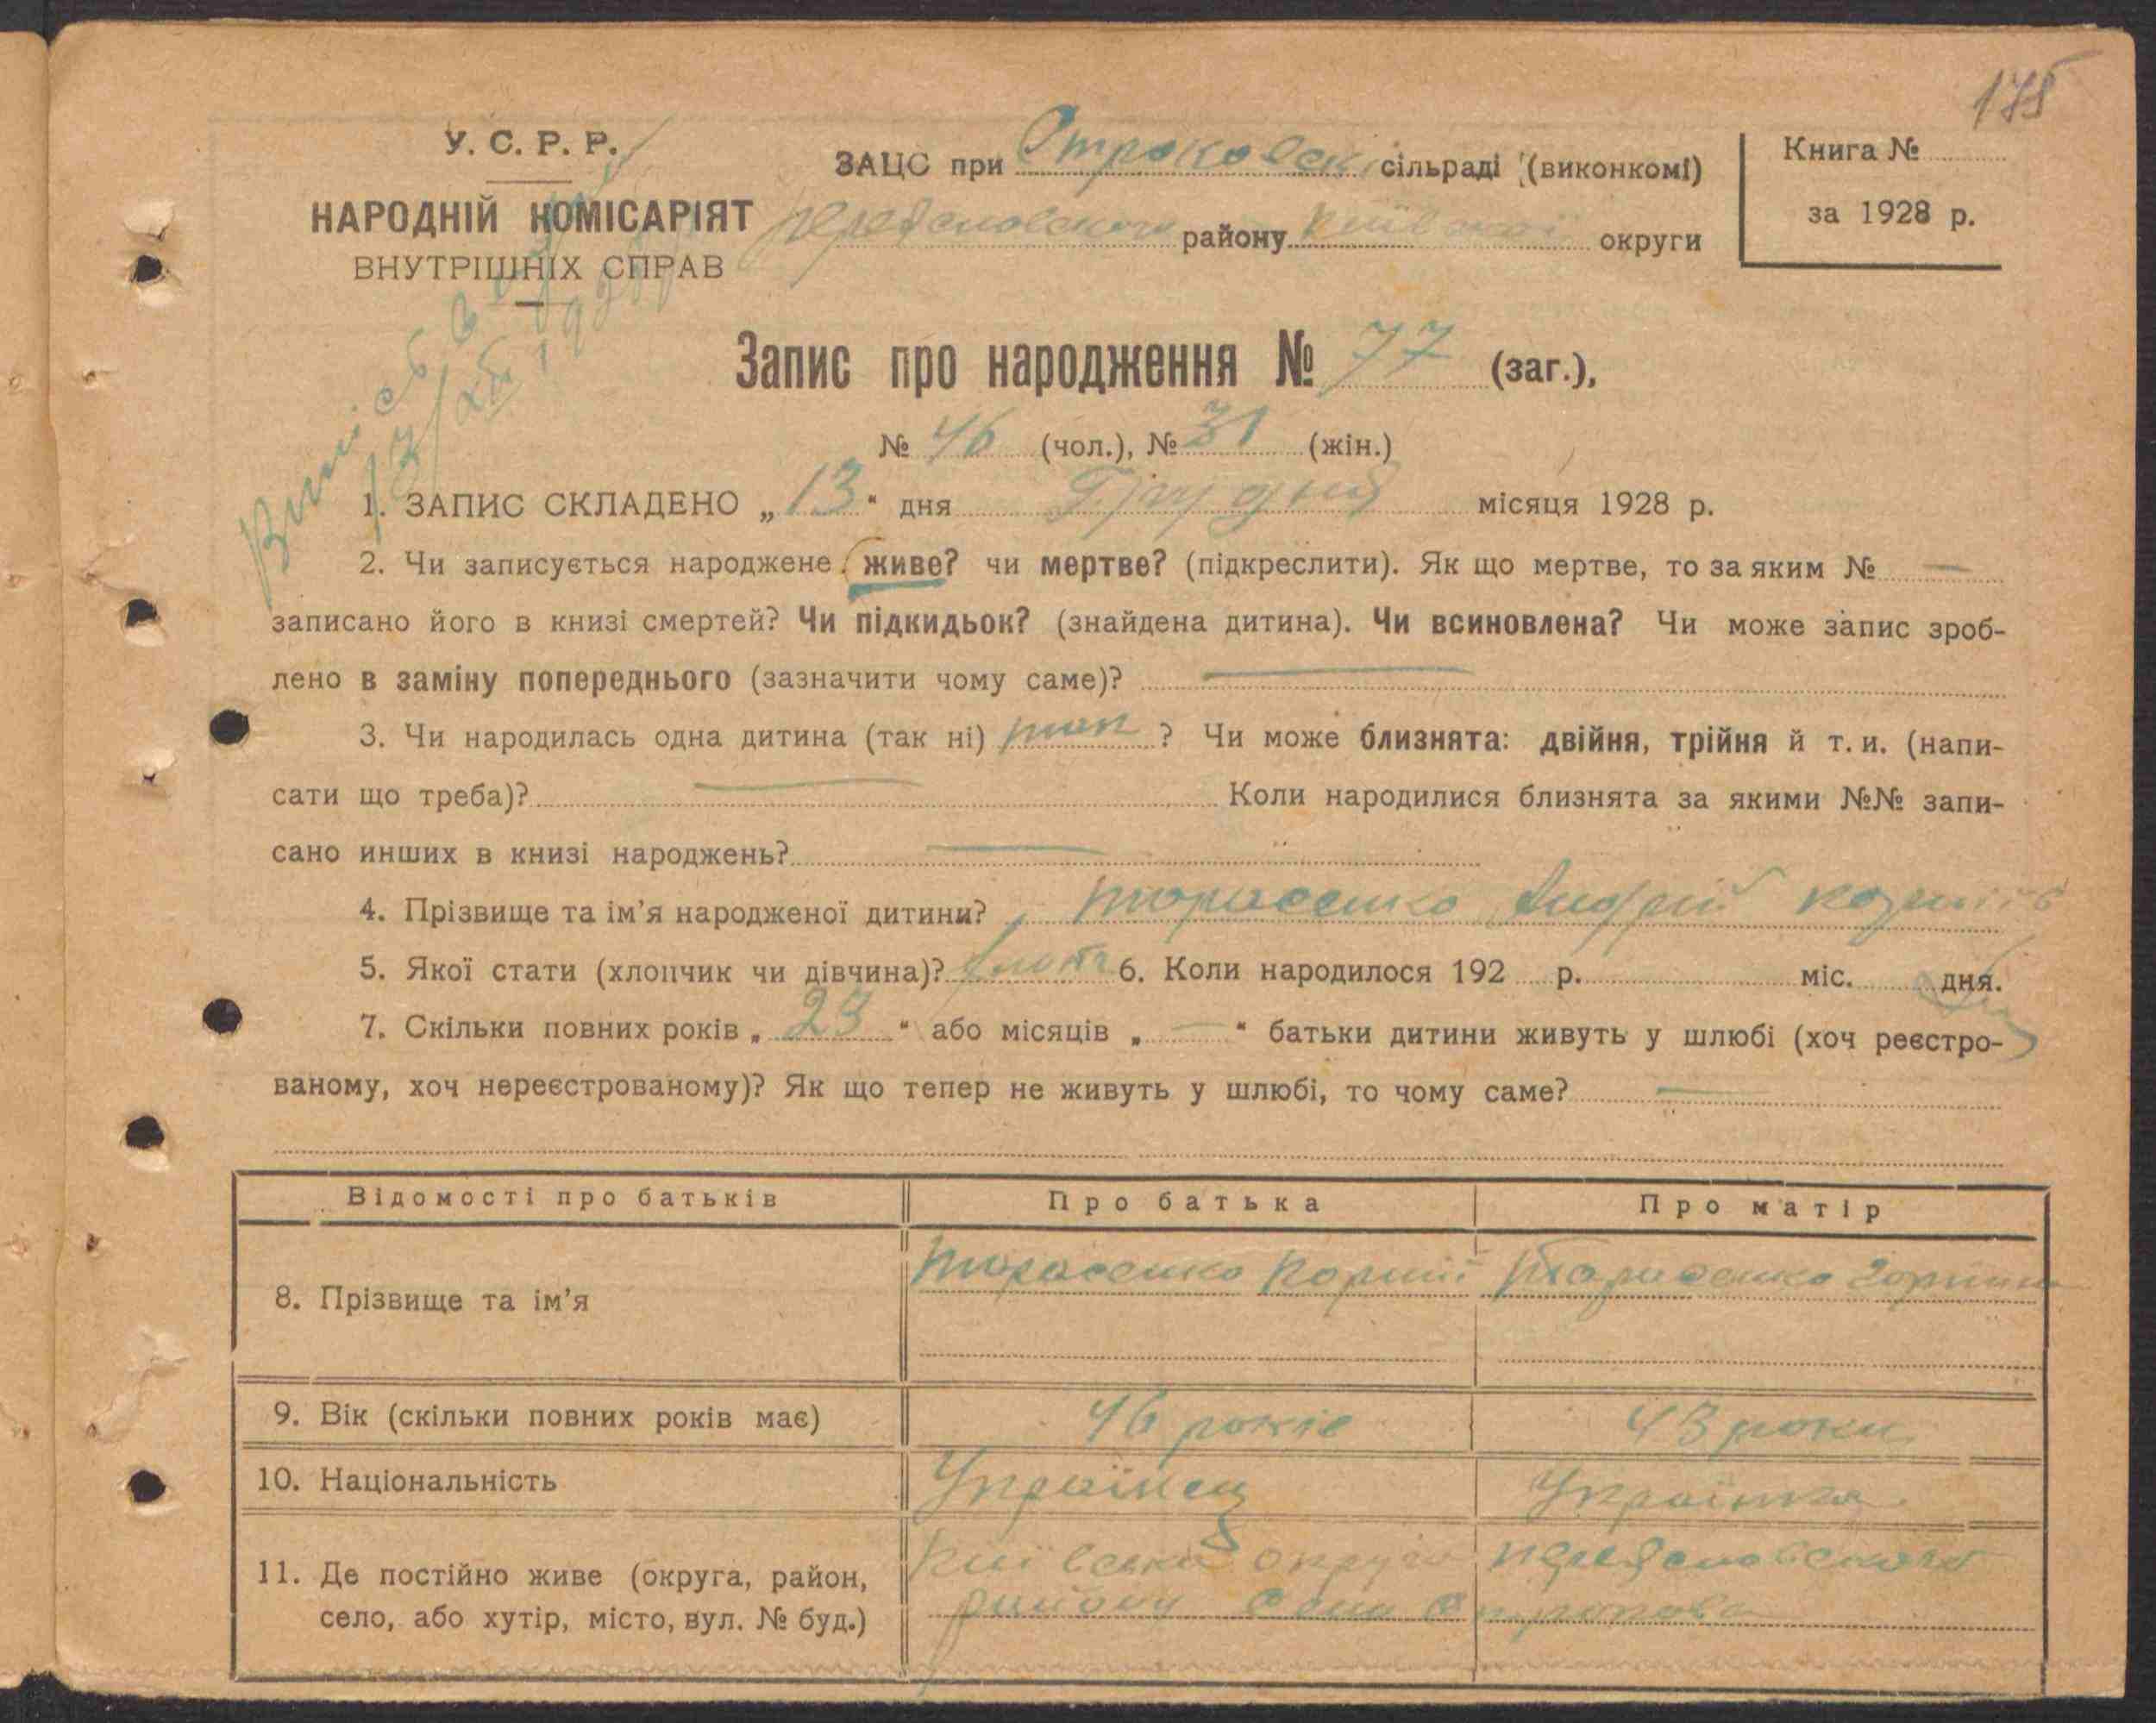 175
У. С. Р. Р.
НАРОДНІЙ КОМІСАРІЯТ
ВНУТРІШНІХ СПРАВ
ЗАЦС при Строковск сільраді (виконкомі)
району Київської округи
Книга №
за 1928 р.
Запис про народження № 77 (заг.),
№ 46 (чол.), № 31 (жін.)
1. ЗАПИС СКЛАДЕНО „ 13 “ дня Грудня місяця 1928 р.
2. Чи записується народжене живе? чи мертве? (підкреслити). Як що мертве, то за яким № —
записано його в книзі смертей? Чи підкидьок? (знайдена дитина). Чи всиновлена? Чи може запис зроб-
лено в заміну попереднього (зазначити чому саме)? —
3. Чи народилась одна дитина (так ні) так ? Чи може близнята: двійня, трійня й т. и. (напи-
сати що треба)? — Коли народилися близнята за якими №№ запи-
сано инших в книзі народжень? —
4. Прізвище та ім’я народженої дитини? Тарасенко Андрій
5. Якої стати (хлопчик чи дівчина)? 6. Коли народилося 192 р. міс. дня.
7. Скільки повних років „ 23 “ або місяців „ — “ батьки дитини живуть у шлюбі (хоч реєстро-
ваному, хоч нереєстрованому)? Як що тепер не живуть у шлюбі, то чому саме? —
Відомості про батьків Про батька Про матір
8. Прізвище та ім’я Тарасенко Корній Тарасенко
9. Вік (скільки повних років має) 46 років 43 роки
10. Національність Українец Українка
11. Де постійно живе (округа, район, Київська округа
село, або хутір, місто, вул. № буд.) району Строкова